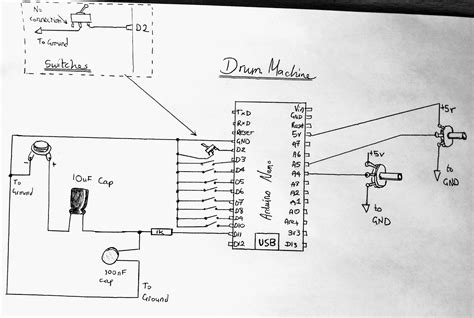 No
connection
To Ground
D2
Switches
Drum Machine
TxD
RxD
RESET
GND
D2
D3
D4
D5
D6
D7
D8
D9
D10
D11
D12
Arduino Nano
USB
Vin
GND
Rest
5v
A7
A6
A5
A4
A3
A2
A1
A0
Aref
3v3
D13
+5v
to
GND
+5v
to
GND
+
To
Ground
10uF Cap
1k
100nF
cap
To
Ground